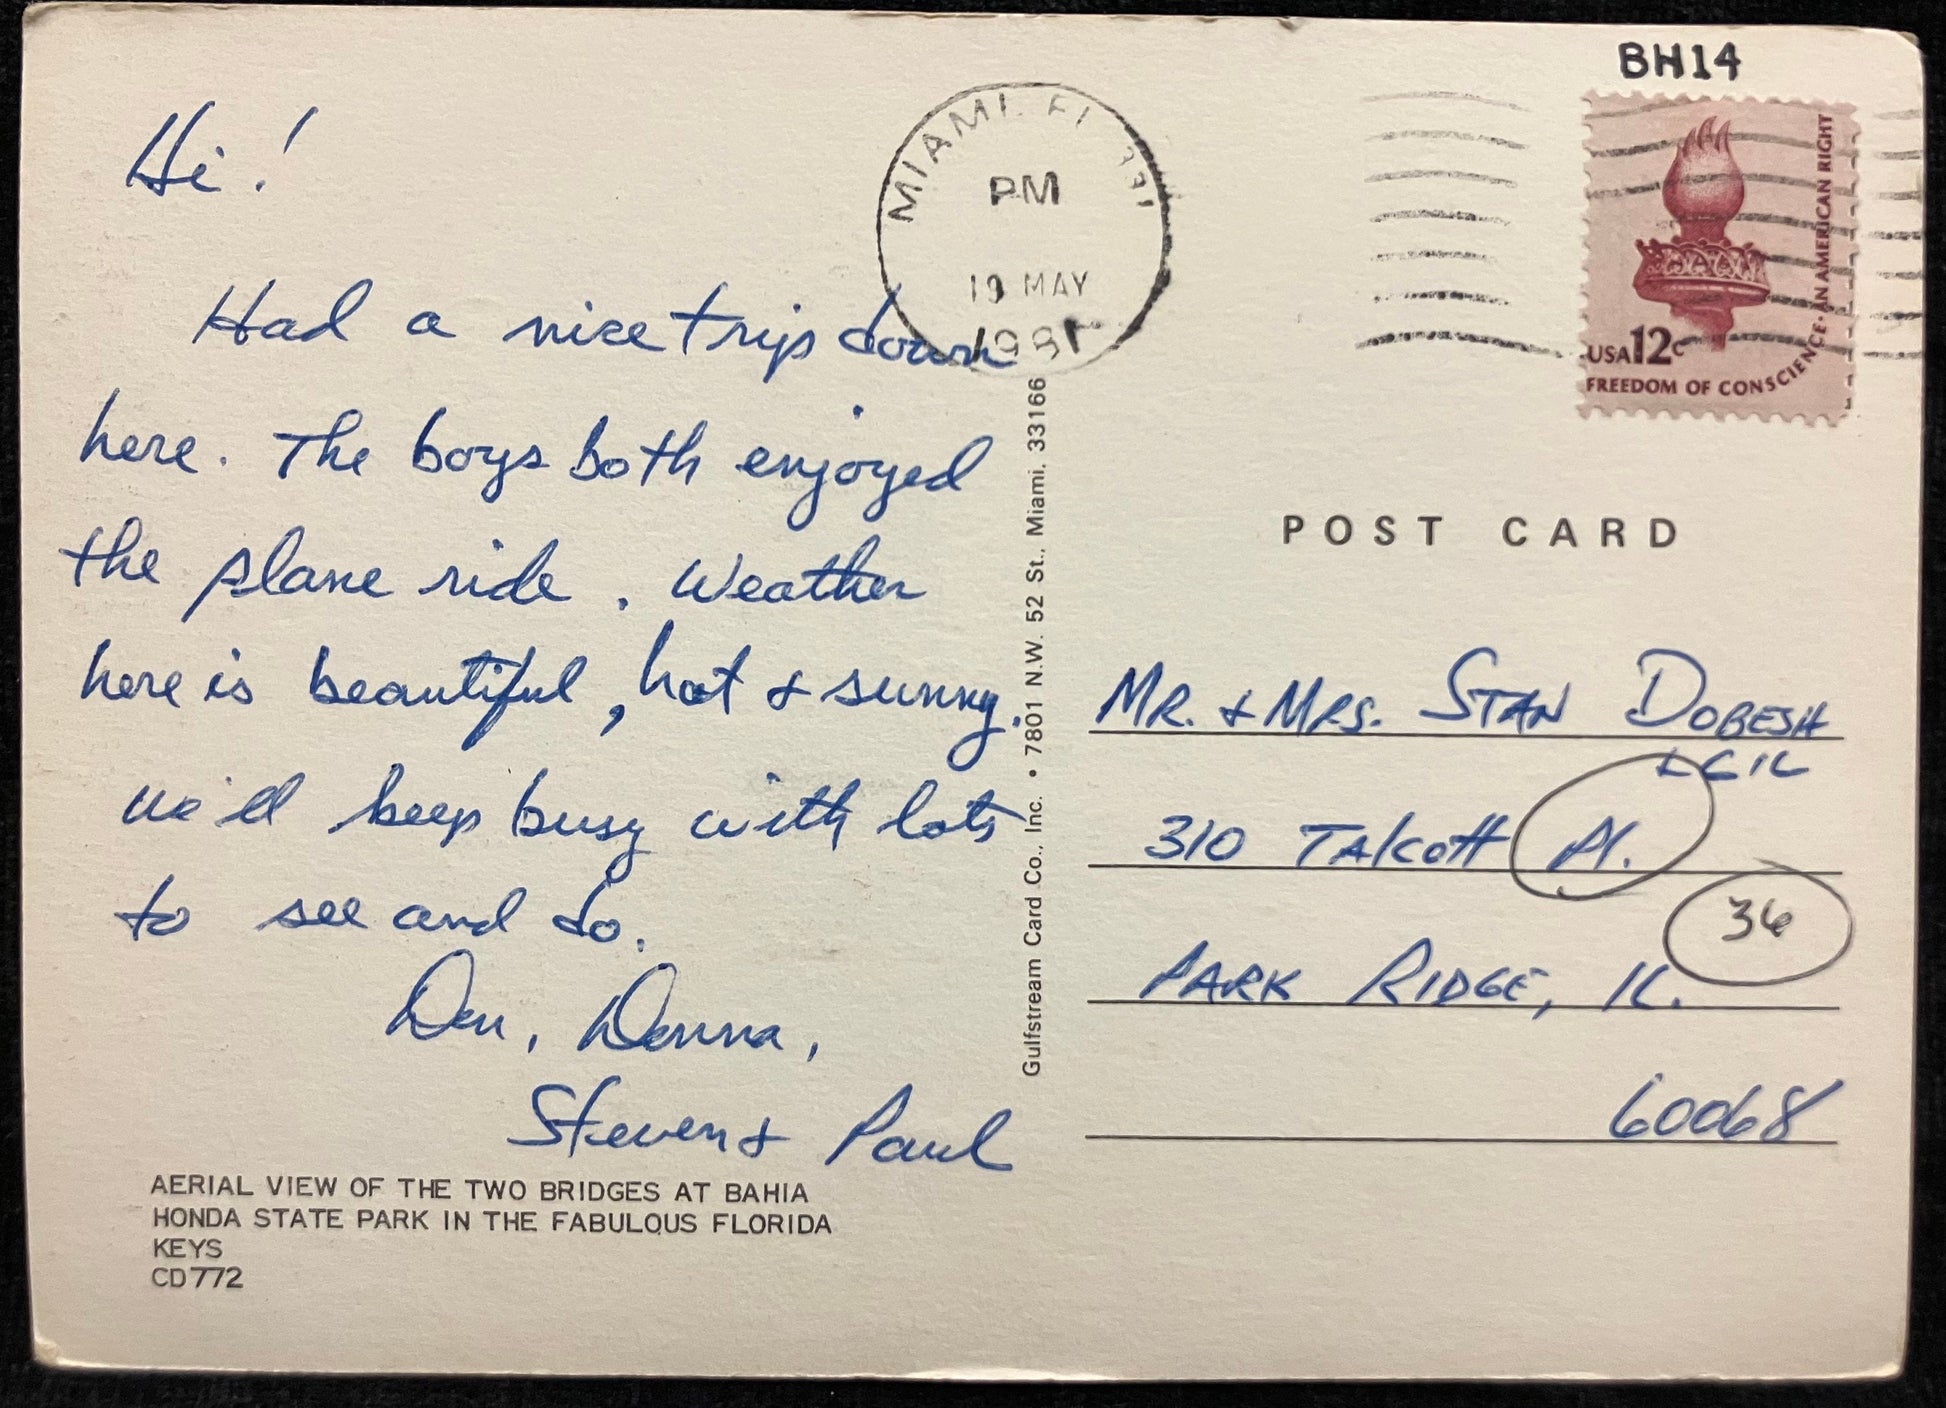 BH14
MIAMI. FL 331
PM
19 MAY
1981
USA 12c
FREEDOM OF CONSCIENCE • AN AMERICAN RIGHT
Hi!
Had a nice trip down
here. The boys both enjoyed
the plane ride. Weather
here is beautiful, hot & sunny.
We'll keep busy with lots
to see and do.
Don, Donna,
Steven & Paul
AERIAL VIEW OF THE TWO BRIDGES AT BAHIA
HONDA STATE PARK IN THE FABULOUS FLORIDA
KEYS
CD772
Gulfstream Card Co., Inc. • 7801 N.W. 52 St., Miami. 33166
POST CARD
MR. & MRS. STAN DOBESH
310 TAlcott Pl.
36
PARK RIDGE, IL.
60068